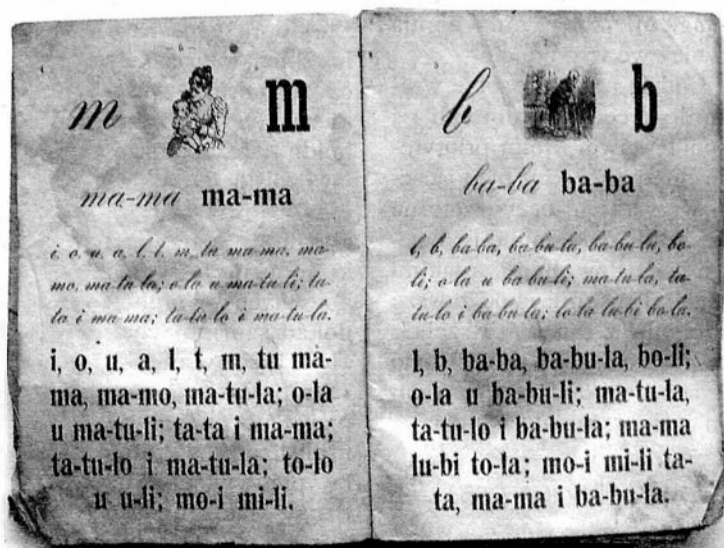 m m
ma-ma ma-ma
i, o, u, a, l, t, m, tu ma-ma, ma-
mo, ma-tu-la; o-la u ma-tu-li; ta-
ta i ma-ma; ta-tu-lo i ma-tu-la.
i, o, u, a, l, t, m, tu ma-
ma, ma-mo, ma-tu-la; o-la
u ma-tu-li; ta-ta i ma-ma;
ta-tu-lo i ma-tu-la; to-lo
u u-li; mo-i mi-li.
b b
ba-ba ba-ba
l, b, ba-ba, ba-bu-la, ba-bu-la, bo-
li; o-la u ba-bu-li; ma-tu-la, ta-
tu-lo i ba-bu-la; lu-bi
l, b, ba-ba, ba-bu-la, bo-li;
o-la u ba-bu-li; ma-tu-la,
ta-tu-lo i ba-bu-la; ma-ma
lu-bi to-la; mo-i mi-li ta-
ta, ma-ma i ba-bu-la.